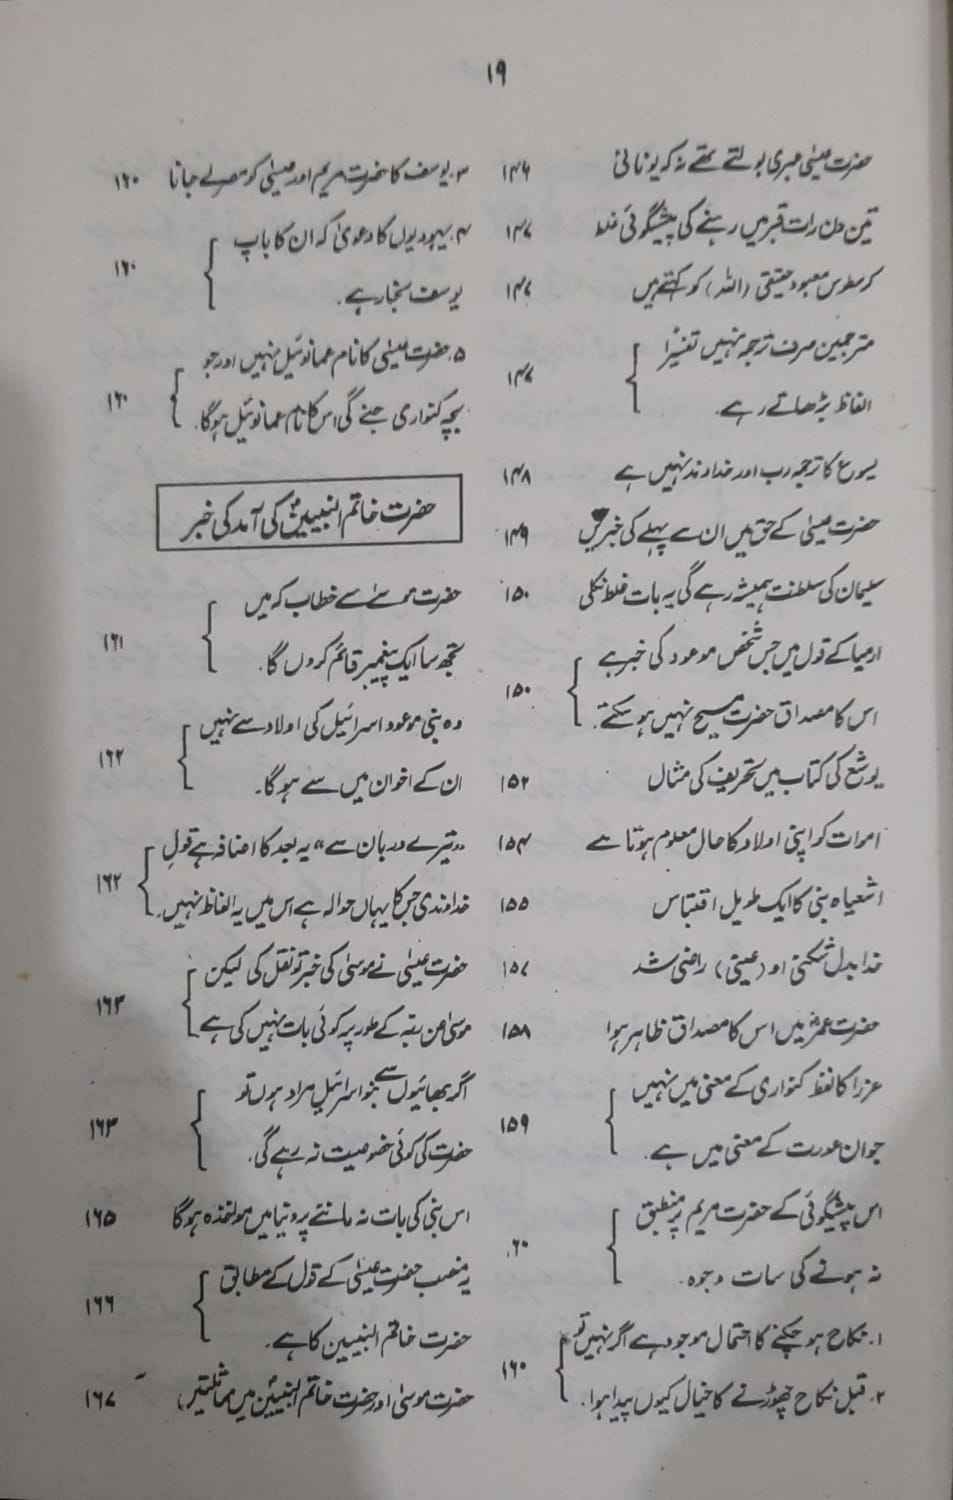 ۱۹
حضرت عیسیٰ عبری بولتے تھے نہ کہ یونانی ۱۴۶
تین دن رات قبر میں رہنے کی پیشگوئی غلط ۱۴۷
کرسطوس معبود حقیقی (اللہ) کو کہتے ہیں ۱۴۷
مترجمین صرف ترجمہ نہیں تفسیرا
الفاظ بڑھاتے رہے۔ ۱۴۷
یسوع کا ترجمہ رب اور خداوند نہیں ہے ۱۴۸
حضرت عیسیٰ کے حق میں ان سے پہلے کی خبریں ۱۴۹
سلیمان کی سلطنت ہمیشہ رہے گی یہ بات غلط نکلی ۱۵۰
ارمیا کے قول میں جس شخص موعود کی خبر ہے
اس کا مصداق حضرت مسیح نہیں ہو سکتے۔ ۱۵۰
یوشع کی کتاب میں تحریف کی مثال ۱۵۲
اموات کو اپنی اولاد کا حال معلوم ہوتا ہے ۱۵۴
اشعیاہ نبی کا ایک طویل اقتباس ۱۵۵
خدا بدل شکنی او (عیسیٰ) راضی شد ۱۵۷
حضرت عمرؓ میں اس کا مصداق ظاہر ہوا ۱۵۸
عزرا کا لفظ کنواری کے معنی میں نہیں
جوان عورت کے معنی میں ہے۔ ۱۵۹
اس پیشگوئی کے حضرت مریم پر منطبق
نہ ہونے کی سات وجوہ۔ ۶۰
۱۔ نکاح ہو چکنے کا احتمال موجود ہے اگر نہیں تو
۲۔ قبل نکاح چھوڑنے کا خیال کیوں پیدا ہوا۔ ۱۶۰
۳۔ یوسف کا حضرت مریم اور عیسیٰ کو مصر لے جانا ۱۶۰
۴۔ یہودیوں کا دعویٰ کہ ان کا باپ
یوسف نجار ہے۔ ۱۶۰
۵۔ حضرت عیسیٰ کا نام عمانوئیل نہیں اور جو
بچہ کنواری جنے گی اس کا نام عمانوئیل ہوگا۔ ۱۶۰
حضرت خاتم النبیین کی آمد کی خبر
حضرت موسےٰ سے خطاب کہ میں
تجھ سا ایک پیغمبر قائم کروں گا۔ ۱۶۱
وہ نبی موعود اسرائیل کی اولاد سے نہیں
ان کے اخوان میں سے ہوگا۔ ۱۶۲
"تیرے درمیان سے" یہ بعد کا اضافہ ہے قول
خداوندی جس کا یہاں حوالہ ہے اس میں یہ الفاظ نہیں۔ ۱۶۲
حضرت عیسیٰ نے موسیٰ کی خبر تو نقل کی لیکن
موسیٰ من بتہ کے طور پر کوئی بات نہیں کی ہے ۱۶۳
اگر بھائیوں سے بنو اسرائیل مراد ہوں تو
حضرت کی کوئی خصوصیت نہ رہے گی۔ ۱۶۳
اس نبی کی بات نہ ماننے پر دنیا میں مواخذہ ہوگا ۱۶۵
یہ منصب حضرت عیسیٰ کے قول کے مطابق
حضرت خاتم النبیین کا ہے۔ ۱۶۶
حضرت موسیٰ اور حضرت خاتم النبیینؐ میں مماثلتیں ۱۶۷